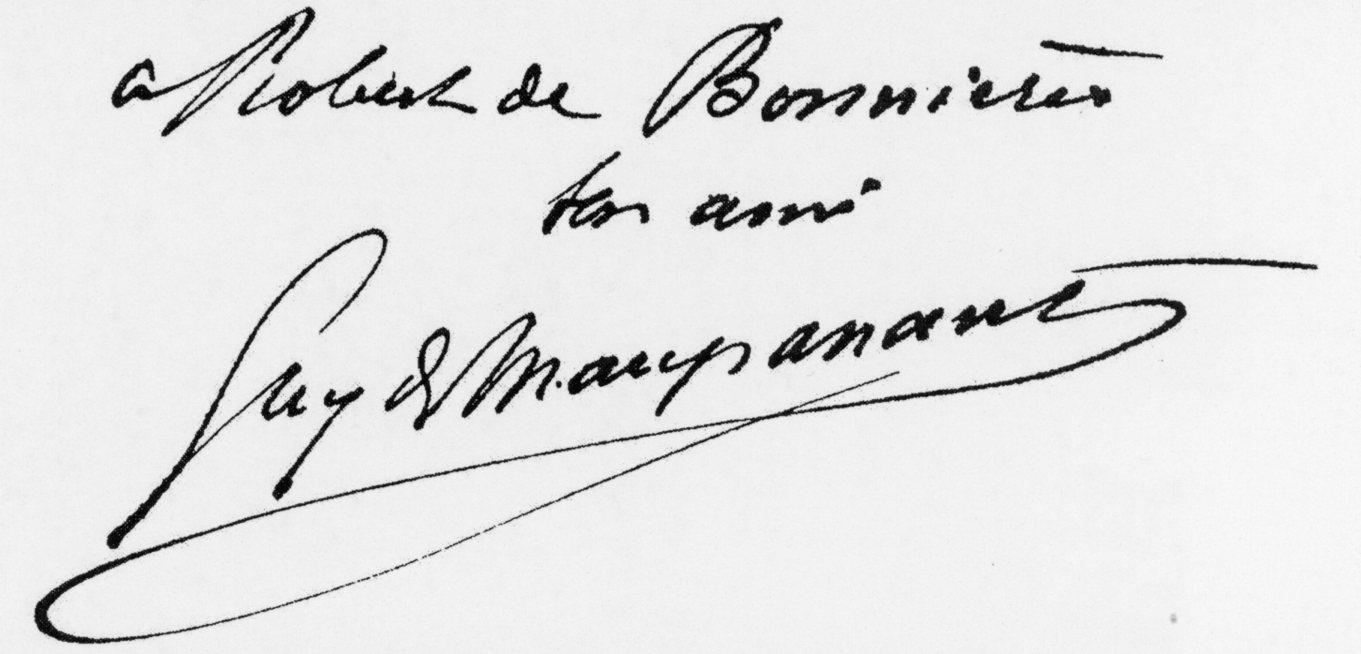 a Robert de Bonnières
son ami
Guy de Maupassant